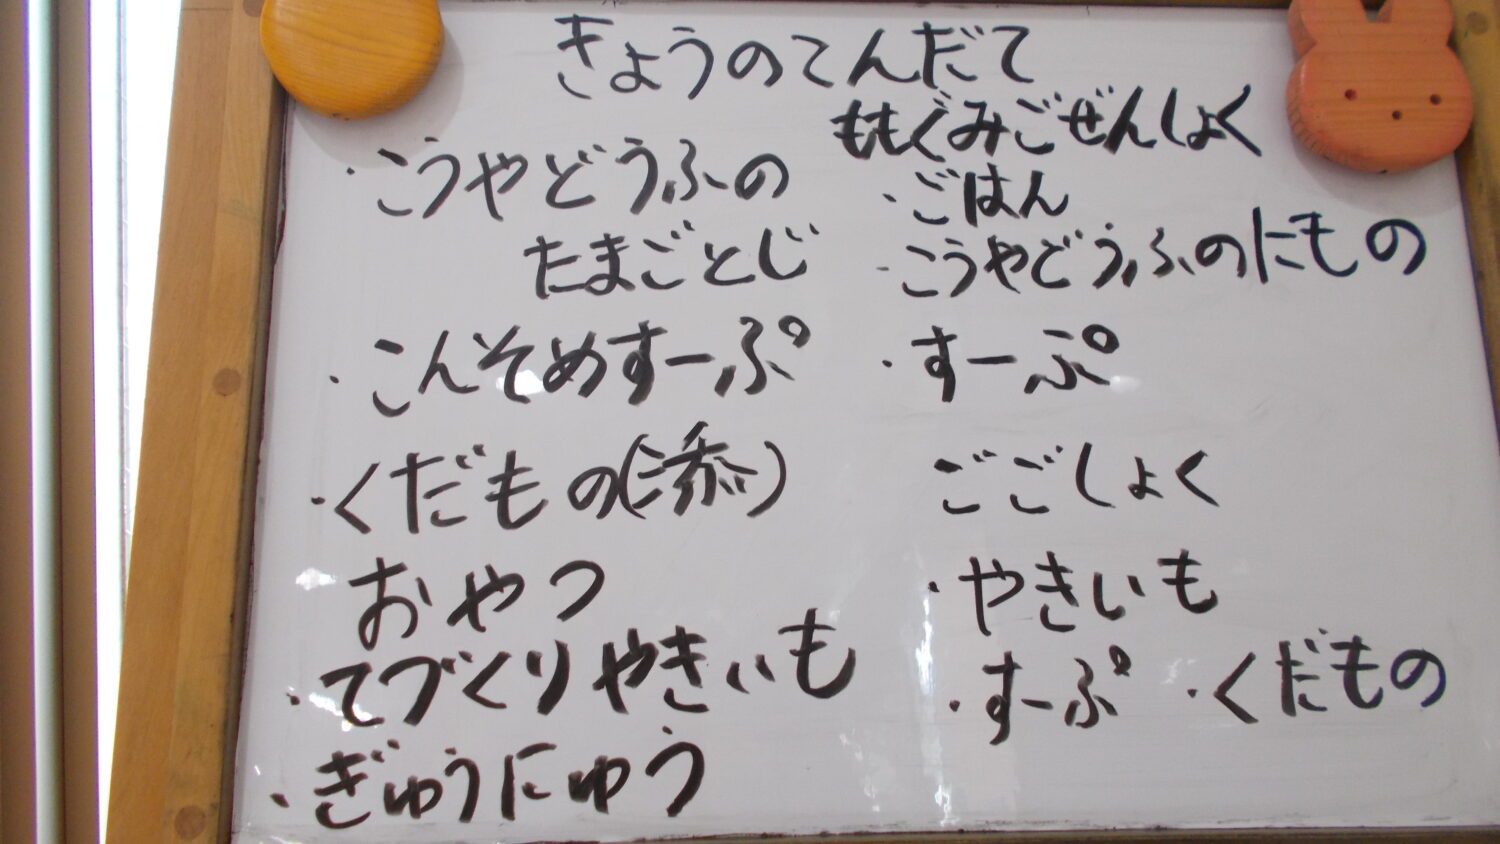 きょうのてんだて
・こうやどうふの
たまごとじ
・こんそめすーぷ
・くだもの(添)
おやつ
・てづくりやきいも
・ぎゅうにゅう
ももぐみごぜんしょく
・ごはん
・こうやどうふのにもの
・すーぷ
ごごしょく
・やきいも
・すーぷ ・くだもの